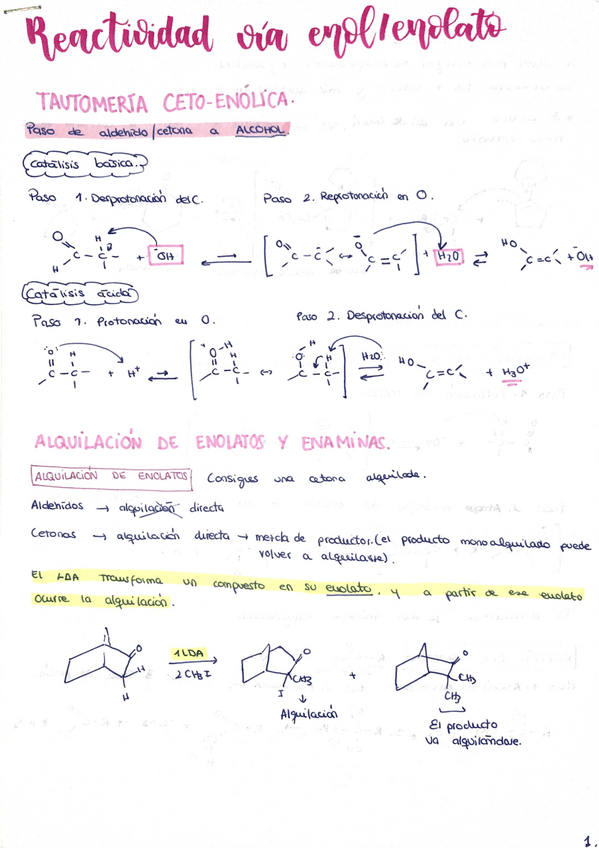 Reactividad vía enol/enolato
TAUTOMERÍA CETO-ENÓLICA.
Paso de aldehido/cetona a ALCOHOL.
Catálisis básica:
Paso 1. Desprotonación del C. Paso 2. Reprotonación en O.
O H C-C- H + ⁻OH ⇌ [ O C-C̄ ↔ ⁻O C=C ] + H₂O ⇌ HO C=C + ⁻OH
Catálisis ácida
Paso 1. Protonación en O. Paso 2. Desprotonación del C.
O H C-C- + H⁺ ⇌ [ O-H H C-C- ↔ H O H C-C- ] H₂O: ⇌ HO C=C + H₃O⁺
ALQUILACIÓN DE ENOLATOS Y ENAMINAS.
ALQUILACIÓN DE ENOLATOS Consigues una cetona alquilada.
Aldehidos → alquilación directa
Cetonas → alquilación directa → mezcla de productos. (el producto monoalquilado puede
volver a alquilarse).
El LDA transforma un compuesto en su enolato, y a partir de ese enolato
ocurre la alquilación.
O H H 1 LDA 2 CH₃I O CH₃ I + O CH₃ CH₃
↓
Alquilación
El producto
va alquilándose.
1.